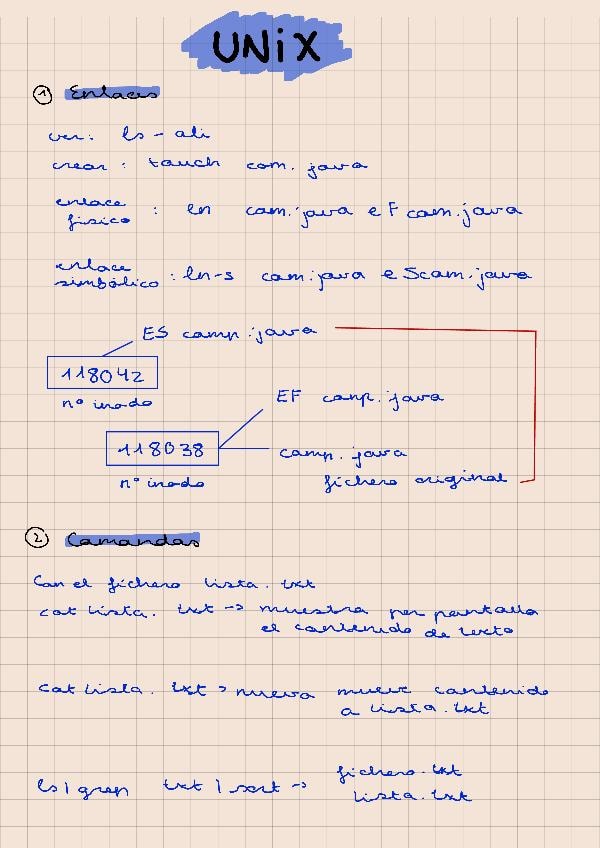 UNiX
1 Enlaces
ver: ls - ali
crear: touch com.java
enlace físico : ln com.java eFcom.java
enlace simbólico : ln-s com.java eScom.java
ES comp.java
118042
nº inodo
EF comp.java
118038
comp.java
nº inodo
fichero original
2 Comandos
Con el fichero lista.txt
cat lista.txt -> muestra por pantalla
el contenido de texto
cat lista.txt > nueva mueve contenido
a lista.txt
fichero.txt
ls | grep txt | sort ->
lista.txt